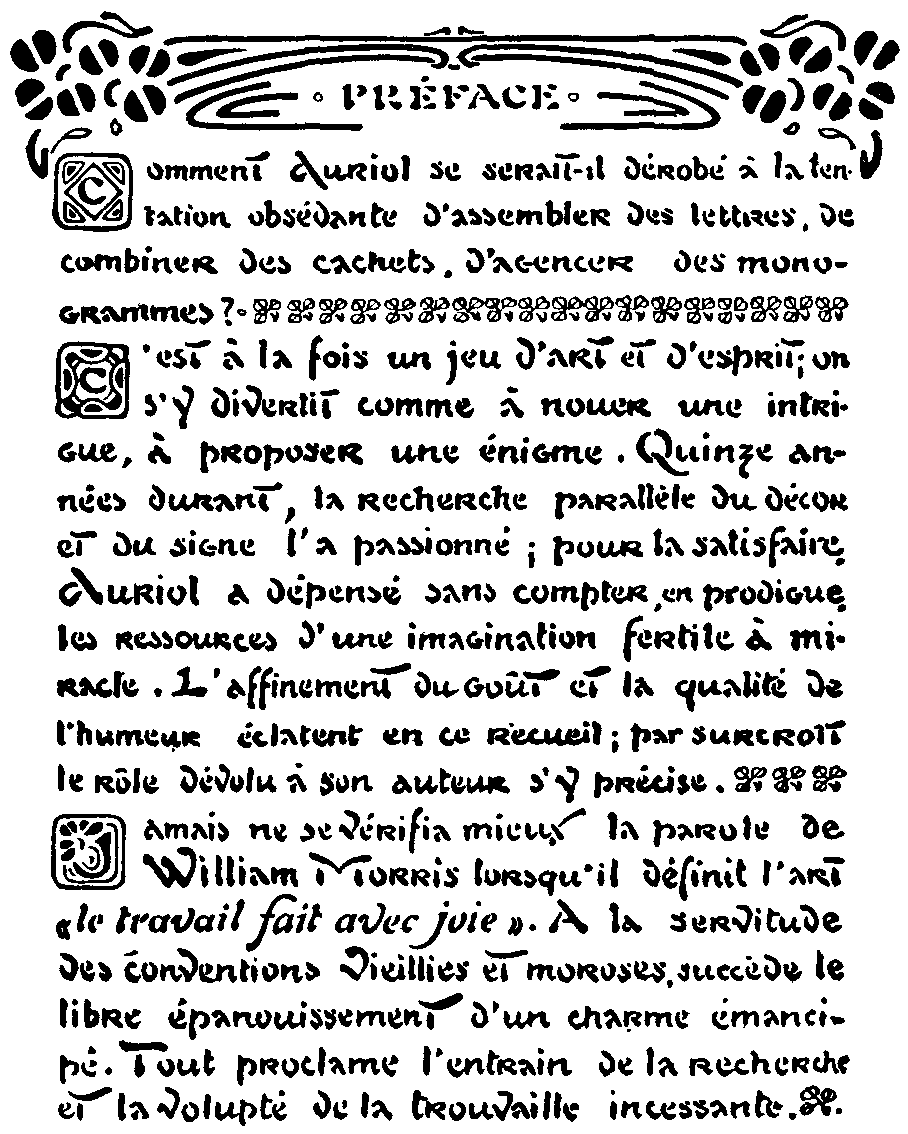 PRÉFACE
Comment Auriol se serait-il dérobé à la ten-
tation obsédante d'assembler des lettres, de
combiner des cachets, d'agencer des mono-
grammes ?
C'est à la fois un jeu d'art et d'esprit; on
s'y divertit comme à nouer une intri-
gue, à proposer une énigme. Quinze an-
nées durant, la recherche parallèle du décor
et du signe l'a passionné ; pour la satisfaire,
Auriol a dépensé sans compter, en prodigue,
les ressources d'une imagination fertile à mi-
racle. L'affinement du goût et la qualité de
l'humeur éclatent en ce recueil ; par surcroît
le rôle dévolu à son auteur s'y précise.
Jamais ne se vérifia mieux la parole de
William Morris lorsqu'il définit l'art
« le travail fait avec joie ». A la servitude
des conventions vieillies et moroses, succède le
libre épanouissement d'un charme émanci-
pé. Tout proclame l'entrain de la recherche
et la volupté de la trouvaille incessante.